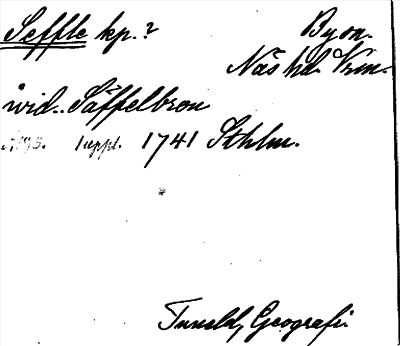 Seffle kp.? By sn.
Näs hd. Vrm.
"wid Säffelbron
s. 195. 1 uppl. 1741 Sthlm.
Tuneld, Geografi.